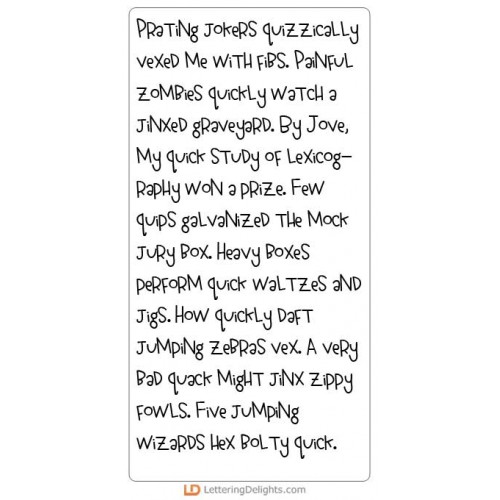 Prating jokers quizzically
vexed me with fibs. Painful
zombies quickly watch a
jinxed graveyard. By Jove,
my quick study of lexicog-
raphy won a prize. Few
quips galvanized the mock
jury box. Heavy boxes
perform quick waltzes and
jigs. How quickly daft
jumping zebras vex. A very
bad quack might jinx zippy
fowls. Five jumping
wizards hex bolty quick.
LD LetteringDelights.com